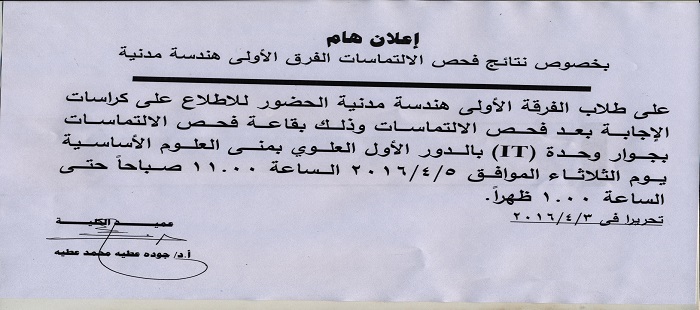 إعلان هام
بخصوص نتائج فحص الالتماسات الفرق الأولى هندسة مدنية
على طلاب الفرقة الأولى هندسة مدنية الحضور للاطلاع على كراسات
الإجابة بعد فحص الالتماسات وذلك بقاعة فحص الالتماسات
بجوار وحدة (IT) بالدور الأول العلوي بمبنى العلوم الأساسية
يوم الثلاثاء الموافق ٢٠١٦/٤/٥ الساعة ١١.٠٠ صباحاً حتى
الساعة ١.٠٠ ظهراً.
تحريرا فى ٢٠١٦/٤/٣
عميد الكلية
أ.د/ جوده عطيه محمد عطيه